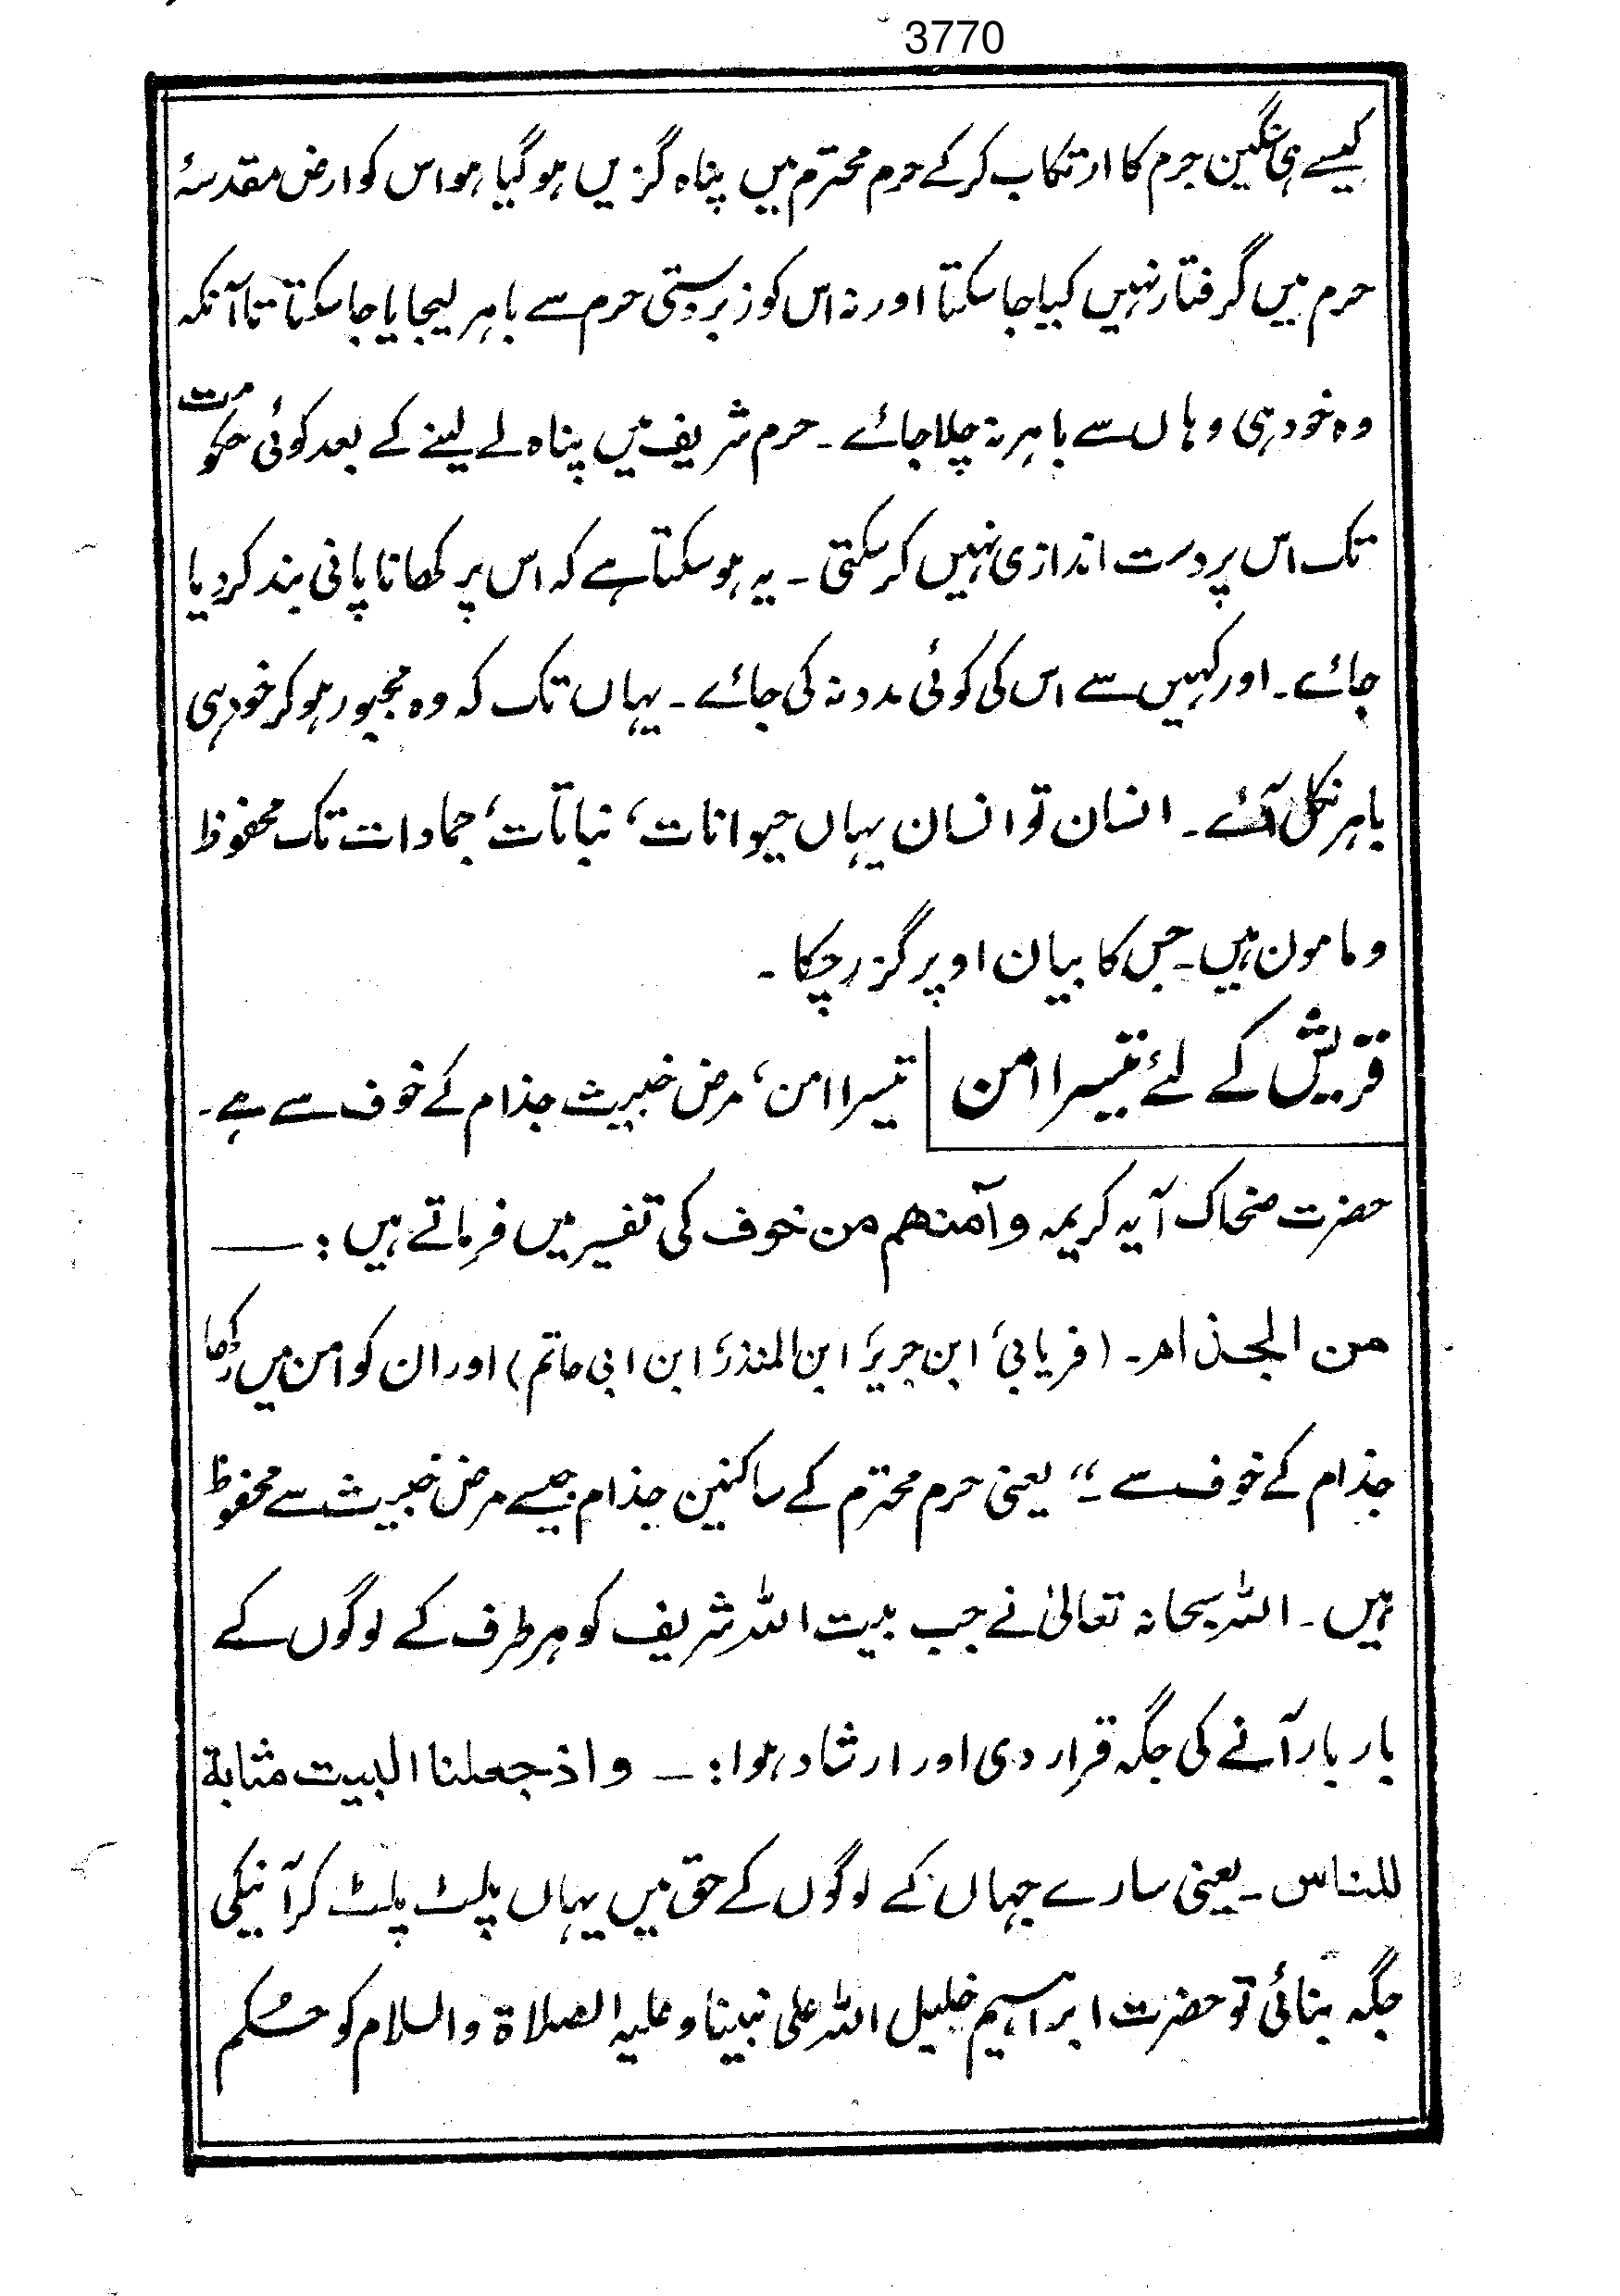 3770
کیسے ہی سنگین جرم کا ارتکاب کرکے حرم محترم میں پناہ گزیں ہوگیا ہو اس کو ارض مقدسۂ
حرم میں گرفتار نہیں کیا جاسکتا اور نہ اس کو زبردستی حرم سے باہر لیجایا جاسکتا تا آنکہ
وہ خود ہی وہاں سے باہر نہ چلا جائے ۔ حرم شریف میں پناہ لے لینے کے بعد کوئی حکومت
تک اس پر دست اندازی نہیں کرسکتی ۔ یہ ہوسکتا ہے کہ اس پر کھانا پانی بند کردیا
جائے ۔ اور کہیں سے اس کی کوئی مدد نہ کی جائے ۔ یہاں تک کہ وہ مجبور ہوکر خود ہی
باہر نکل آئے ۔ انسان تو انسان یہاں حیوانات ‘ نباتات ‘ جمادات تک محفوظ
و مامون ہیں ۔ جس کا بیان اوپر گزر چکا ۔
قریش کے لئے تیسرا امن تیسرا امن ‘ مرض خبیث جذام کے خوف سے ہے ۔
حضرت ضحاک آیہ کریمہ وآمنھم من خوف کی تفسیر میں فرماتے ہیں : ——
من الجذام ۔ ( فریابی ‘ ابن جریر ‘ ابن المنذر ‘ ابن ابی حاتم ) اور ان کو امن میں رکھا
جذام کے خوف سے ۔“ یعنی حرم محترم کے ساکنین جذام جیسے مرض خبیث سے محفوظ
ہیں ۔ اللہ سبحانہ تعالیٰ نے جب بیت اللہ شریف کو ہر طرف کے لوگوں کے
بار بار آنے کی جگہ قرار دی اور ارشاد ہوا : — واذ جعلنا البیت مثابة
للناس ۔ یعنی سارے جہاں کے لوگوں کے حق میں یہاں پلٹ پلٹ کر آنیکی
جگہ بنائی تو حضرت ابراہیم خلیل اللہ علی نبینا و علیہ الصلاۃ والسلام کو حکم